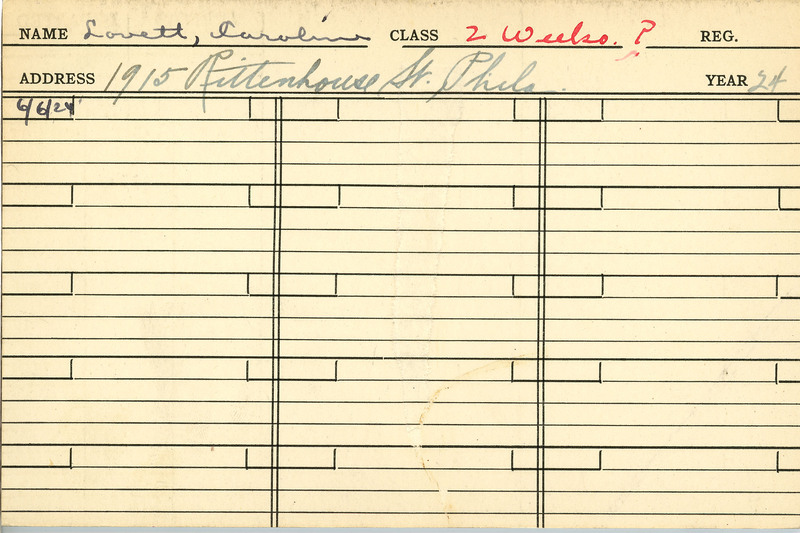 NAME Lovett, Caroline CLASS 2 Weeks. P REG.
ADDRESS 1915 Rittenhouse St. Phila. YEAR 24
6/6/24